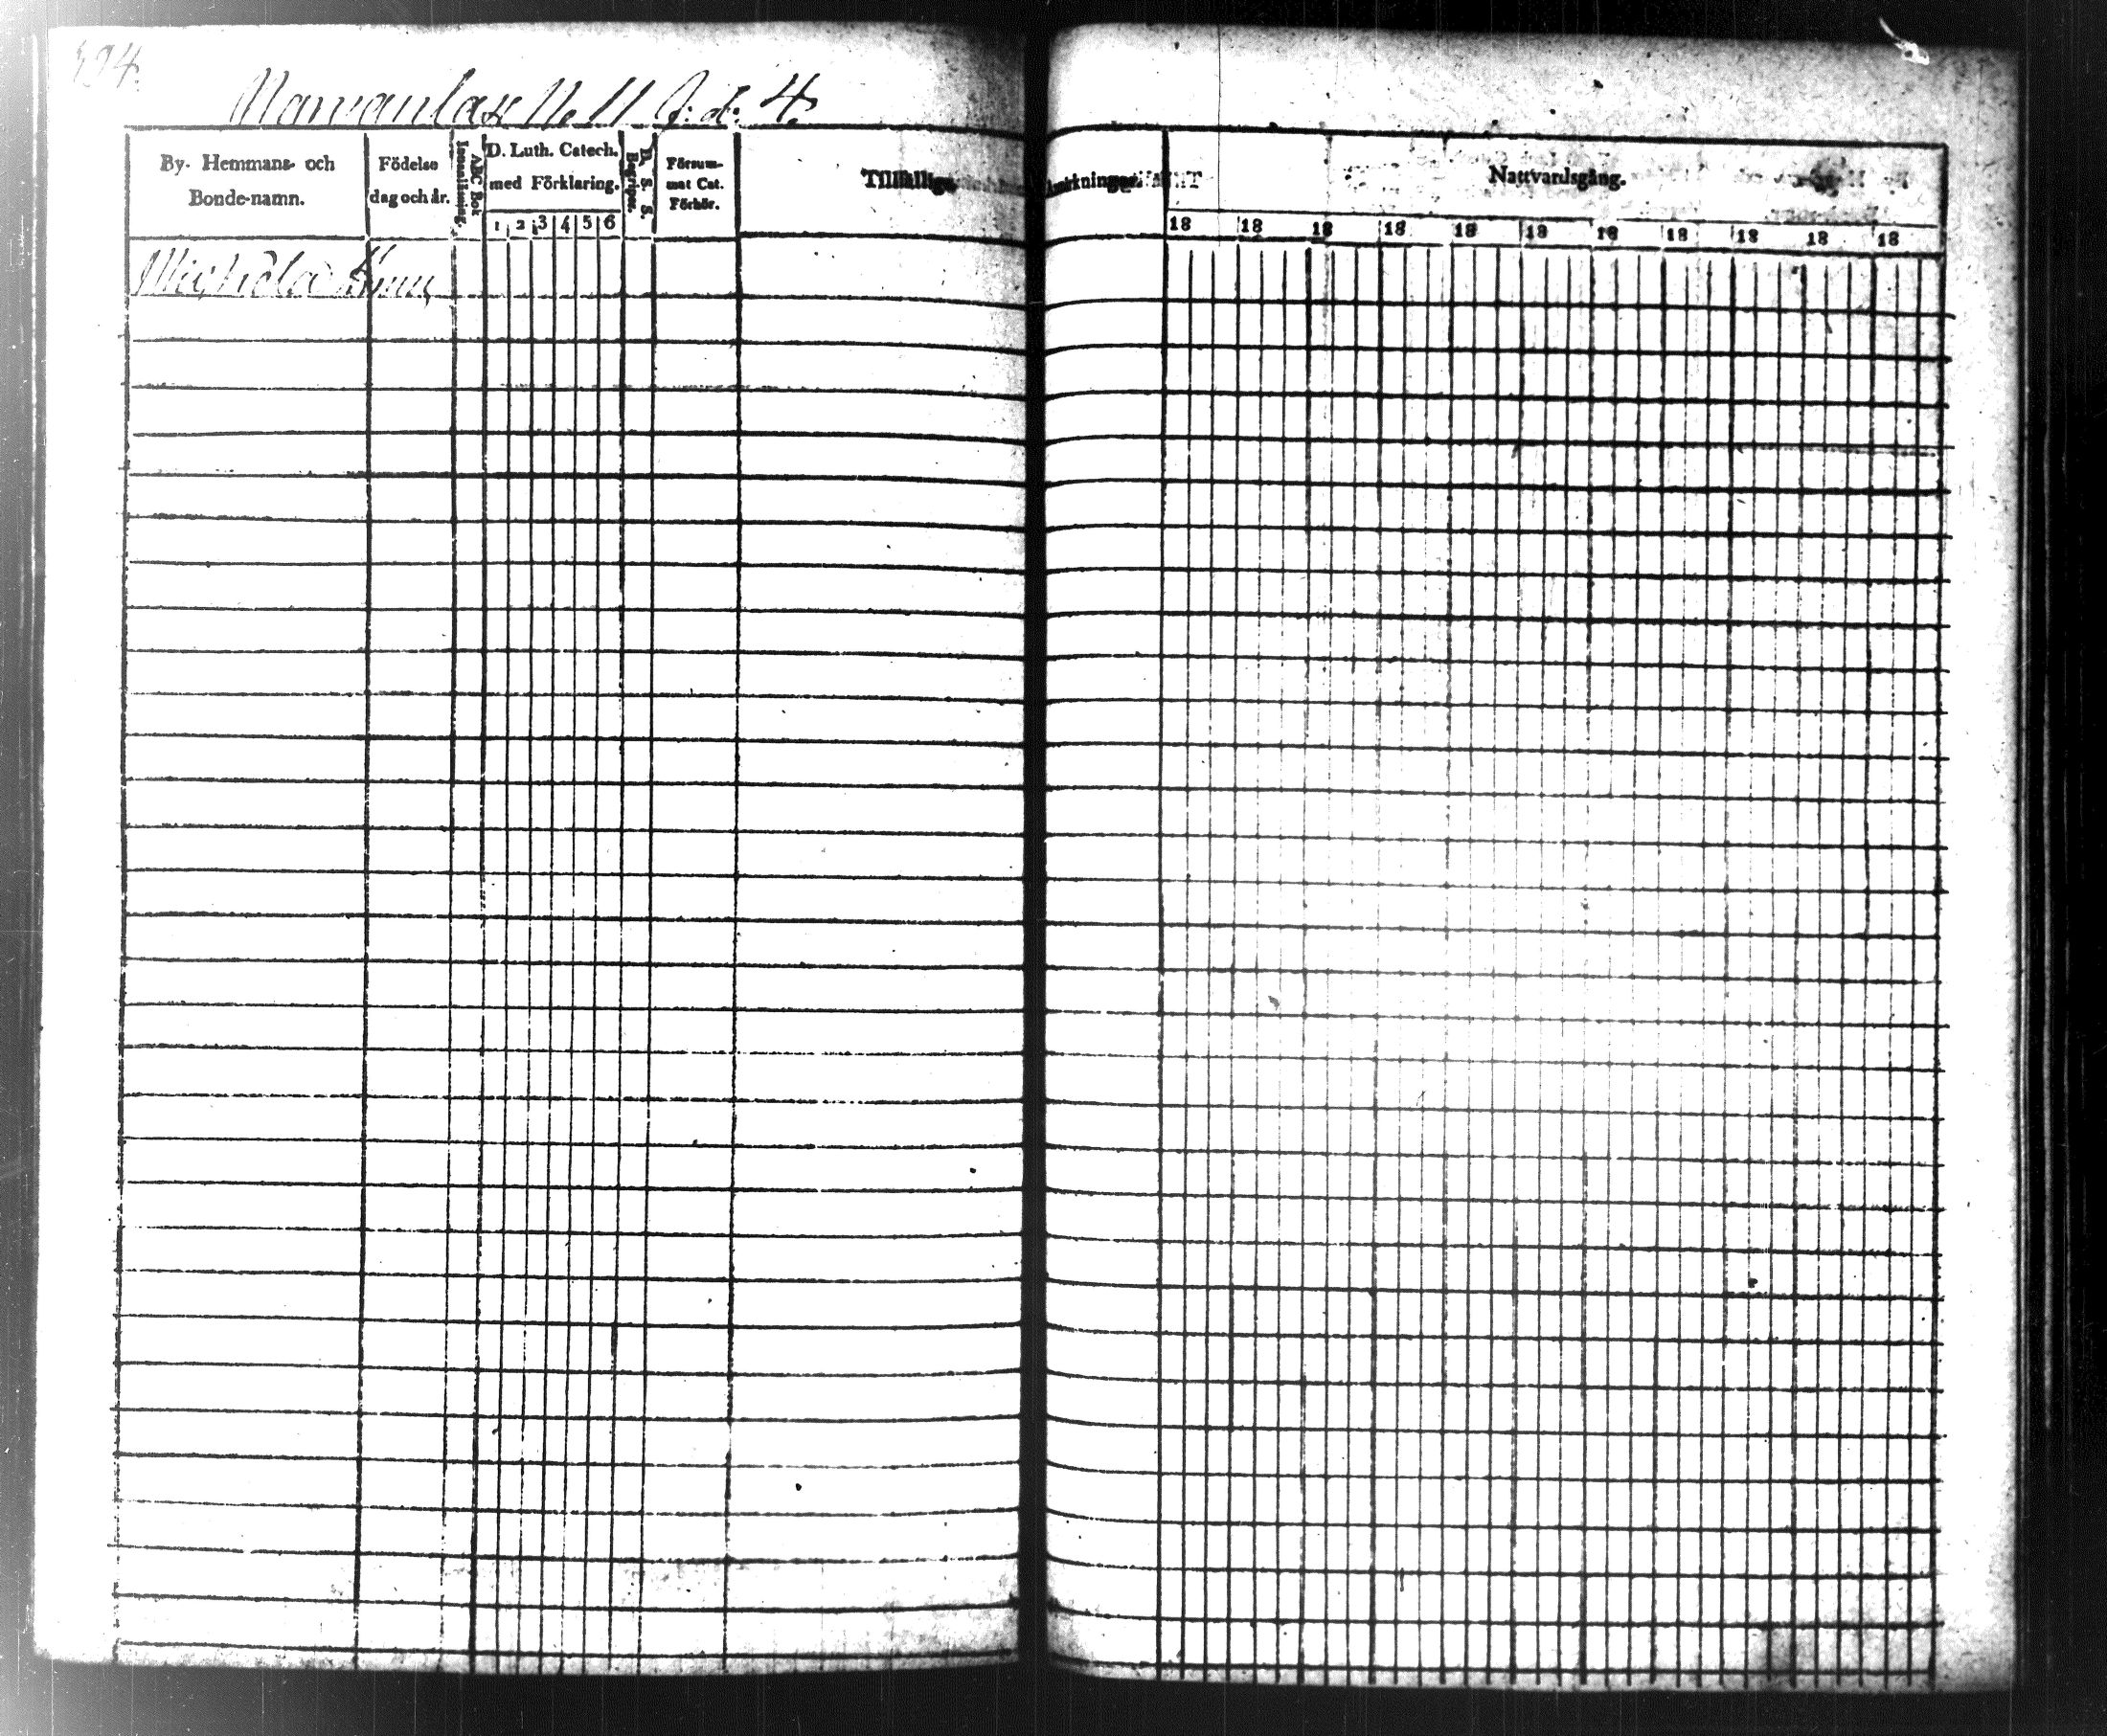 194.
No 11 4.
By- Hemmans- och Bonde-namn.
Födelse dag och år.
ABC Bok Innanläsning.
D. Luth. Catech. med Förklaring.
1 2 3 4 5 6
D. S. S. S. Begriper.
Försummat Cat. Förhör.
Tillfällige
Anmärkningar.
Nattvardsgång.
18 18 18 18 18 18 18 18 18 18 18